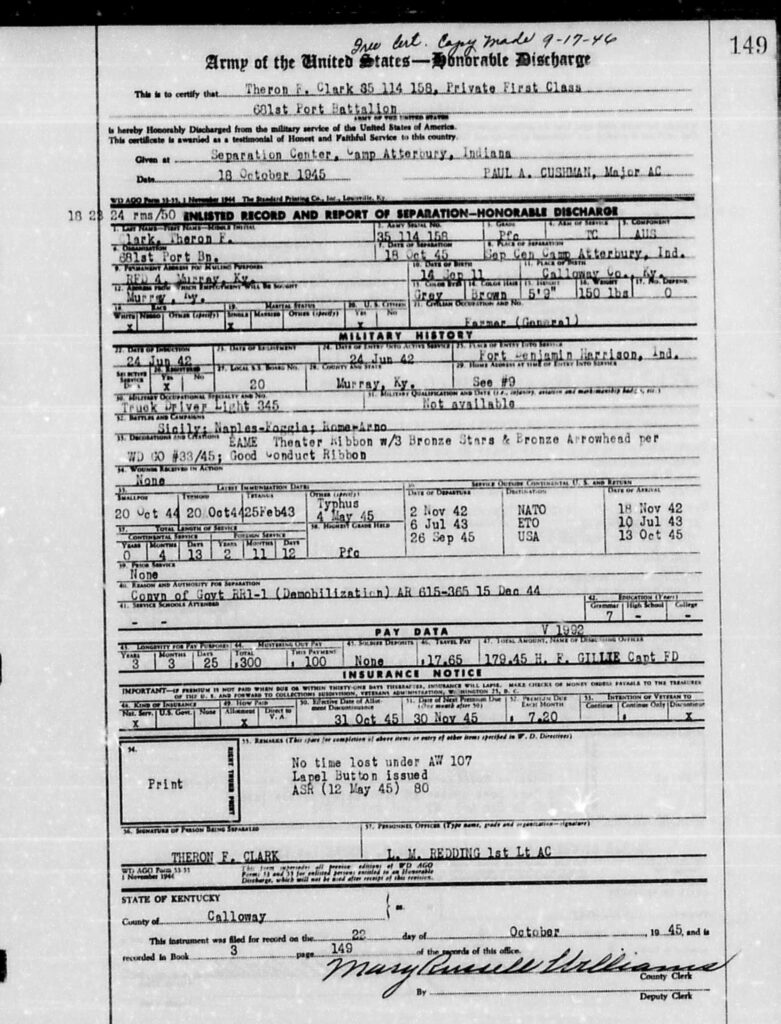 Free Cert. Copy Made 9-17-46
149
Army of the United States—Honorable Discharge
This is to certify that Theron F. Clark 35 114 158, Private First Class
681st Port Battalion
ARMY OF THE UNITED STATES
is hereby Honorably Discharged from the military service of the United States of America.
This certificate is awarded as a testimonial of Honest and Faithful Service to this country.
Given at Separation Center, Camp Atterbury, Indiana
Date 18 October 1945 PAUL A. CUSHMAN, Major AC
WD AGO Form 53-55, 1 November 1944 The Standard Printing Co., Inc., Louisville, Ky.
18 23 24 rms/50 ENLISTED RECORD AND REPORT OF SEPARATION—HONORABLE DISCHARGE
1. LAST NAME—FIRST NAME—MIDDLE INITIAL 2. ARMY SERIAL NO. 3. GRADE 4. ARM OF SERVICE 5. COMPONENT
Clark, Theron F. 35 114 158 Pfc TC AUS
6. ORGANIZATION 7. DATE OF SEPARATION 8. PLACE OF SEPARATION
681st Port Bn. 18 Oct 45 Sep Cen Camp Atterbury, Ind.
9. PERMANENT ADDRESS FOR MAILING PURPOSES 10. DATE OF BIRTH 11. PLACE OF BIRTH
RFD 4, Murray, Ky. 14 Sep 11 Calloway Co., Ky.
12. ADDRESS FROM WHICH EMPLOYMENT WILL BE SOUGHT 13. COLOR EYES 14. COLOR HAIR 15. HEIGHT 16. WEIGHT 17. NO. DEPEND.
Murray, Ky. Grey Brown 5'9" 150 lbs 0
18. RACE 19. MARITAL STATUS 20. U. S. CITIZEN 21. CIVILIAN OCCUPATION AND NO.
WHITE NEGRO OTHER (specify) SINGLE MARRIED OTHER (specify) YES NO
X X X Farmer (General)
MILITARY HISTORY
22. DATE OF INDUCTION 23. DATE OF ENLISTMENT 24. DATE OF ENTRY INTO ACTIVE SERVICE 25. PLACE OF ENTRY INTO SERVICE
24 Jun 42 24 Jun 42 Fort Benjamin Harrison, Ind.
SELECTIVE SERVICE DATA 26. REGISTERED YES NO 27. LOCAL S.S. BOARD NO. 28. COUNTY AND STATE 29. HOME ADDRESS AT TIME OF ENTRY INTO SERVICE
X 20 Murray, Ky. See #9
30. MILITARY OCCUPATIONAL SPECIALTY AND NO. 31. MILITARY QUALIFICATION AND DATE (i.e., infantry, aviation and marksmanship badges, etc.)
Truck Driver Light 345 Not available
32. BATTLES AND CAMPAIGNS
Sicily; Naples-Foggia; Rome-Arno
33. DECORATIONS AND CITATIONS EAME Theater Ribbon w/3 Bronze Stars & Bronze Arrowhead per
WD GO #33/45; Good Conduct Ribbon
34. WOUNDS RECEIVED IN ACTION
None
35. LATEST IMMUNIZATION DATES 36. SERVICE OUTSIDE CONTINENTAL U. S. AND RETURN
SMALLPOX TYPHOID TETANUS OTHER (specify) DATE OF DEPARTURE DESTINATION DATE OF ARRIVAL
20 Oct 44 20 Oct44 25Feb43 Typhus 4 May 45
2 Nov 42 NATO 18 Nov 42
6 Jul 43 ETO 10 Jul 43
26 Sep 45 USA 13 Oct 45
37. TOTAL LENGTH OF SERVICE 38. HIGHEST GRADE HELD
CONTINENTAL SERVICE FOREIGN SERVICE
YEARS MONTHS DAYS YEARS MONTHS DAYS
0 4 13 2 11 12 Pfc
39. PRIOR SERVICE
None
40. REASON AND AUTHORITY FOR SEPARATION
Convn of Govt RR1-1 (Demobilization) AR 615-365 15 Dec 44
41. SERVICE SCHOOLS ATTENDED 42. EDUCATION (Years)
Grammar High School College
- - 7 - -
PAY DATA V 1992
43. LONGEVITY FOR PAY PURPOSES 44. MUSTERING OUT PAY 45. SOLDIER DEPOSITS 46. TRAVEL PAY 47. TOTAL AMOUNT, NAME OF DISBURSING OFFICER
YEARS MONTHS DAYS TOTAL THIS PAYMENT
3 3 25 300 100 None 17.65 179.45 H. F. GILLIE Capt FD
INSURANCE NOTICE
IMPORTANT—IF PREMIUM IS NOT PAID WHEN DUE OR WITHIN THIRTY-ONE DAYS THEREAFTER, INSURANCE WILL LAPSE. MAKE CHECKS OR MONEY ORDERS PAYABLE TO THE TREASURER
OF THE U. S. AND FORWARD TO COLLECTIONS SUBDIVISION, VETERANS ADMINISTRATION, WASHINGTON 25, D. C.
48. KIND OF INSURANCE 49. HOW PAID 50. Effective Date of Allotment Discontinuance 51. Date of Next Premium Due (One month after 50) 52. PREMIUM DUE EACH MONTH 53. INTENTION OF VETERAN TO
Nat. Serv. U.S. Govt. None Allotment Direct to V. A. Continue Continue Only Discontinue
X X 31 Oct 45 30 Nov 45 7.20 X
54. 55. REMARKS (This space for completion of above items or entry of other items specified in W. D. Directives)
Print
RIGHT THUMB PRINT
No time lost under AW 107
Lapel Button issued
ASR (12 May 45) 80
56. SIGNATURE OF PERSON BEING SEPARATED 57. PERSONNEL OFFICER (Type name, grade and organization—signature)
THERON F. CLARK L. M. REDDING 1st Lt AC
WD AGO Form 53-55
1 November 1944
This form supersedes all previous editions of WD AGO
Forms 53 and 55 for enlisted persons entitled to an Honorable
Discharge, which will not be used after receipt of this revision.
STATE OF KENTUCKY
County of Calloway } ss.
This instrument was filed for record on the 22 day of October, 1945, and is
recorded in Book 3 page 149 of the records of this office.
Mary Russell Williams
County Clerk
By
Deputy Clerk